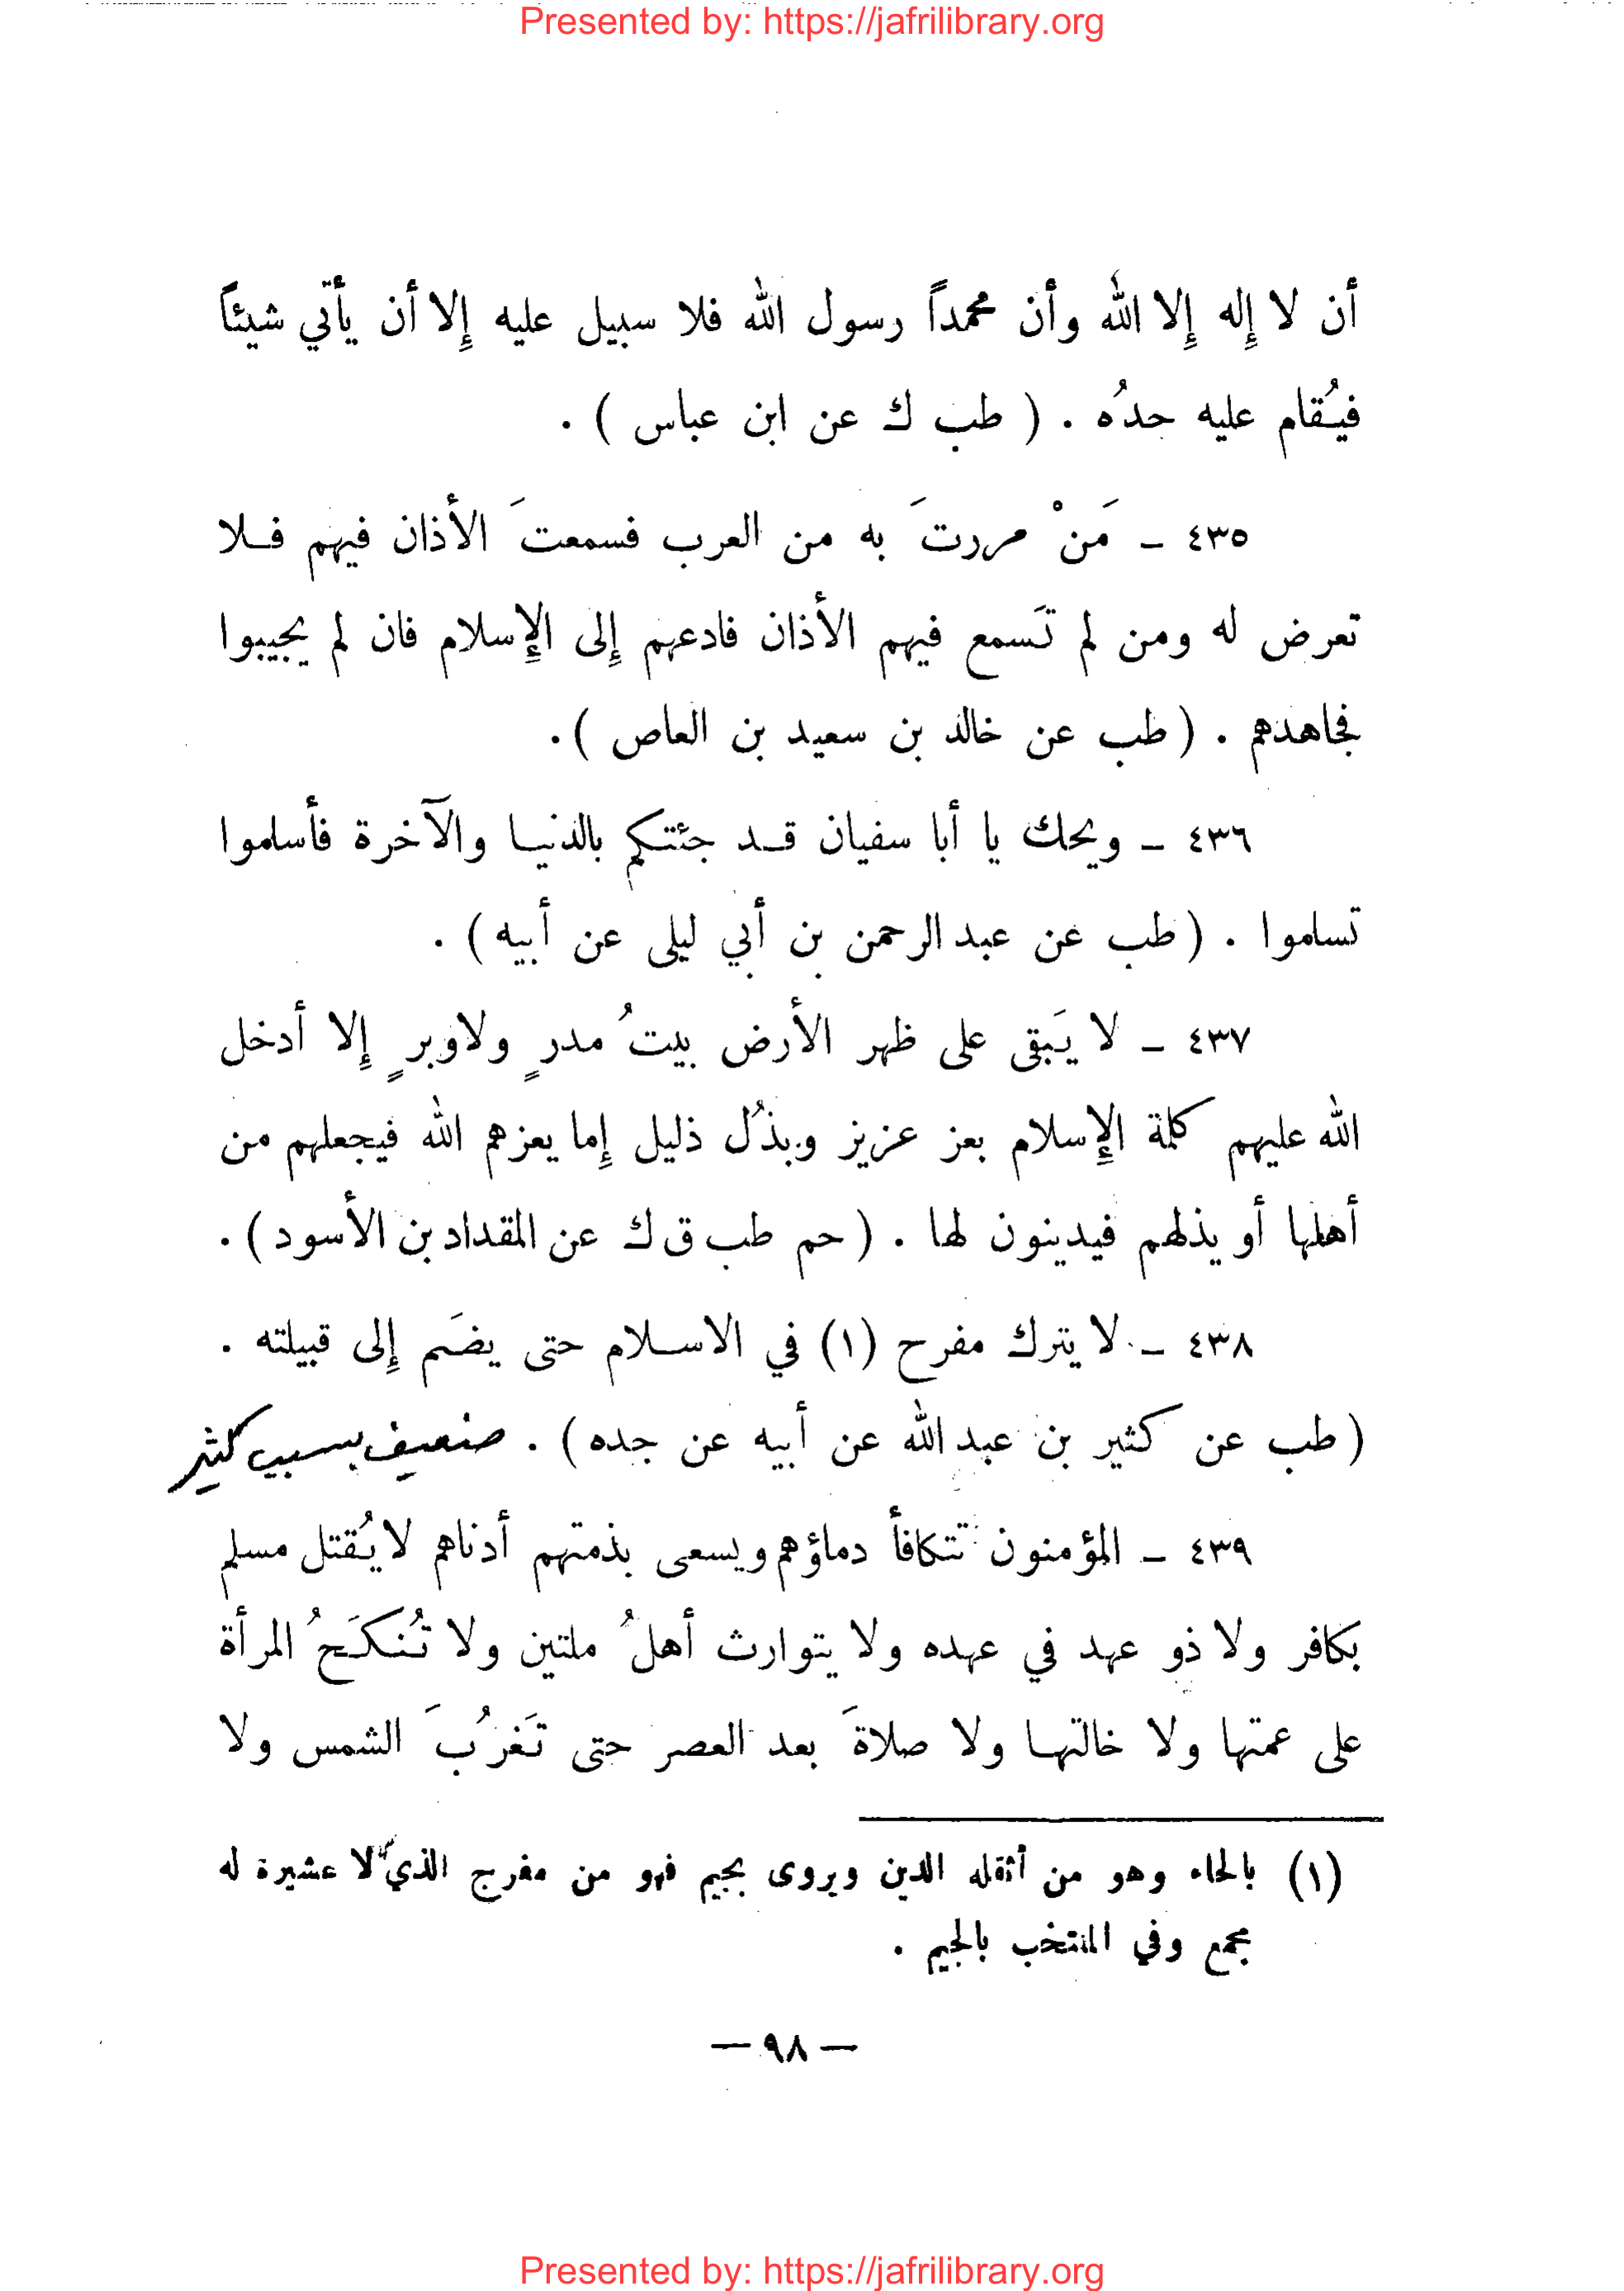 Presented by: https://jafrilibrary.org
أن لا إِله إِلا الله وأن محمداً رسول الله فلا سبيل عليه إِلا أن يأتي شيئاً
فيُقام عليه حدُه . ( طب ك عن ابن عباس ) .
٤٣٥ – مَنْ مررتَ به من العرب فسمعتَ الأذان فيهم فلا
تعرض له ومن لم تَسمع فيهم الأذان فادعهم إِلى الإِسلام فان لم يجيبوا
فجاهدهم . ( طب عن خالد بن سعيد بن العاص ) .
٤٣٦ – ويحك يا أبا سفيان قد جئتكم بالدنيا والآخرة فأسلموا
تسلموا . ( طب عن عبد الرحمن بن أبي ليلى عن أبيه ) .
٤٣٧ – لا يَبقى على ظهر الأرض بيتُ مدرٍ ولا وبرٍ إِلا أدخل
الله عليهم كلمة الإِسلام بعز عزيز وبذُل ذليل إِما يعزهم الله فيجعلهم من
أهلها أو يذلهم فيدينون لها . ( حم طب ق ك عن المقداد بن الأسود ) .
٤٣٨ – لا يترك مفرح (١) في الاسلام حتى يضَم إِلى قبيلته .
( طب عن كثير بن عبد الله عن أبيه عن جده ) . ضعيف بسبب كثير
٤٣٩ – المؤمنون تتكافأ دماؤهم ويسعى بذمتهم أدناهم لا يُقتل مسلم
بكافر ولا ذو عهد في عهده ولا يتوارث أهلُ ملتين ولا تُنكَحُ المرأة
على عمتها ولا خالتها ولا صلاةَ بعد العصر حتى تَغرُبَ الشمس ولا
(١) بالحاء وهو من أثقله الدين ويروى بجيم فهو من مفرج الذي لا عشيرة له
مجمع وفي المنتخب بالجيم .
— ٩٨ —
Presented by: https://jafrilibrary.org